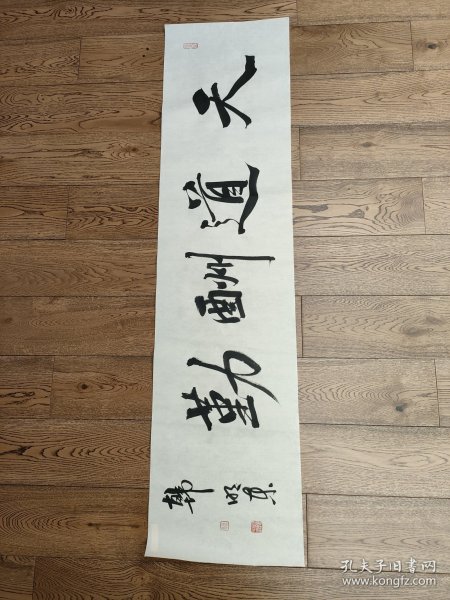 天道酬勤
韩
孔夫子旧书网
www.kongfz.com